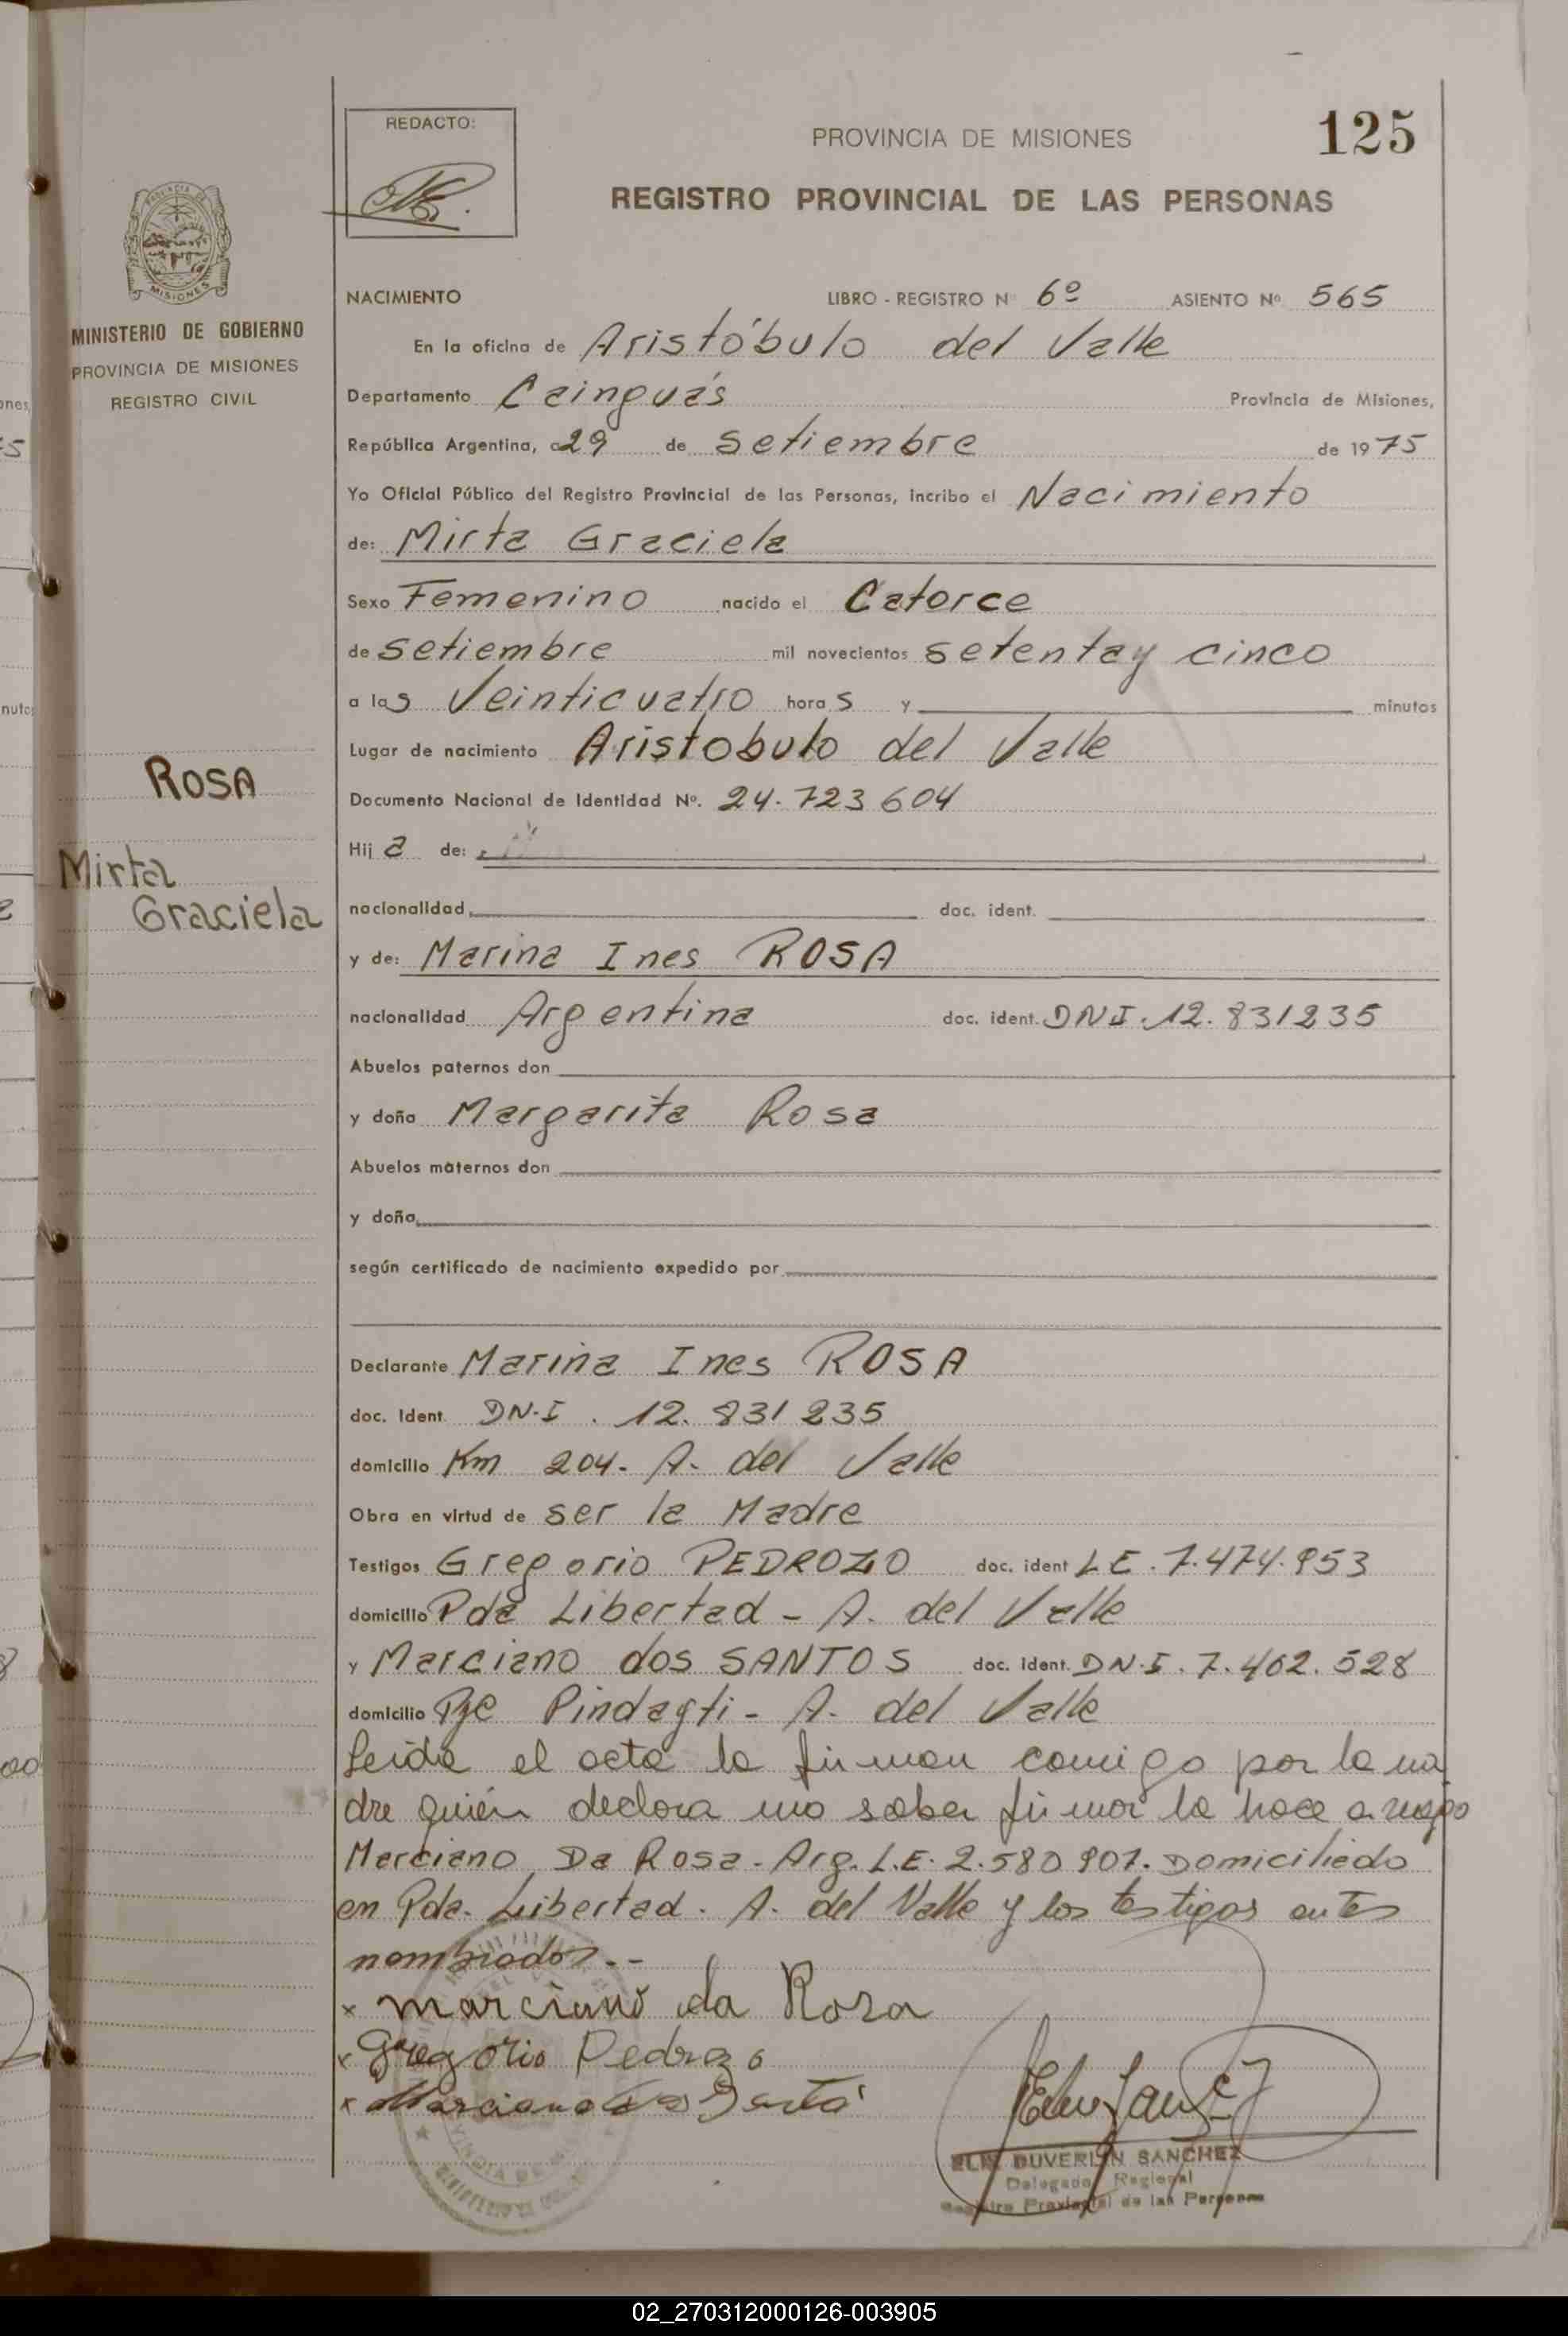 REDACTO:
PROVINCIA DE MISIONES
125
REGISTRO PROVINCIAL DE LAS PERSONAS
MISIONES
MINISTERIO DE GOBIERNO
PROVINCIA DE MISIONES
REGISTRO CIVIL
NACIMIENTO LIBRO - REGISTRO Nº 6º ASIENTO Nº 565
En la oficina de Aristóbulo del Valle
Departamento Cainguás Provincia de Misiones,
República Argentina, a 29 de setiembre de 1975
Yo Oficial Público del Registro Provincial de las Personas, incribo el Nacimiento
de: Mirta Graciela
Sexo Femenino nacido el Catorce
de setiembre mil novecientos setenta y cinco
a las Veinticuatro horas y minutos
Lugar de nacimiento Aristobulo del Valle
ROSA
Documento Nacional de Identidad Nº. 24.723604
Hija de:
Mirta
Graciela
nacionalidad doc. ident.
y de: Marina Ines ROSA
nacionalidad Argentina doc. ident. DNI.12.831235
Abuelos paternos don
y doña Margarita Rosa
Abuelos maternos don
y doña
según certificado de nacimiento expedido por
Declarante Marina Ines ROSA
doc. Ident. DN.I. 12.831235
domicilio Km 204- A. del Valle
Obra en virtud de ser la Madre
Testigos Gregorio PEDROZO doc. ident LE.7.474.953
domicilio Pda Libertad - A. del Valle
y Marciano dos SANTOS doc. ident. DN.I.7.402.528
domicilio Pje Pindayti - A. del Valle
Leida el acta la firman comigo por la ma
dre quién declara no saber firmar lo hace a ruego
Marciano Da Rosa - Arg. L.E. 2.580907. Domiciliado
en Pda. Libertad. A. del Valle y los testigos antes
nombrados.-
x marciano da Rosa
x Gregorio Pedrozo
x Marciano
DUVERLIN SANCHEZ
Delegado Regional
Registro Provincial de las Personas
02_270312000126-003905